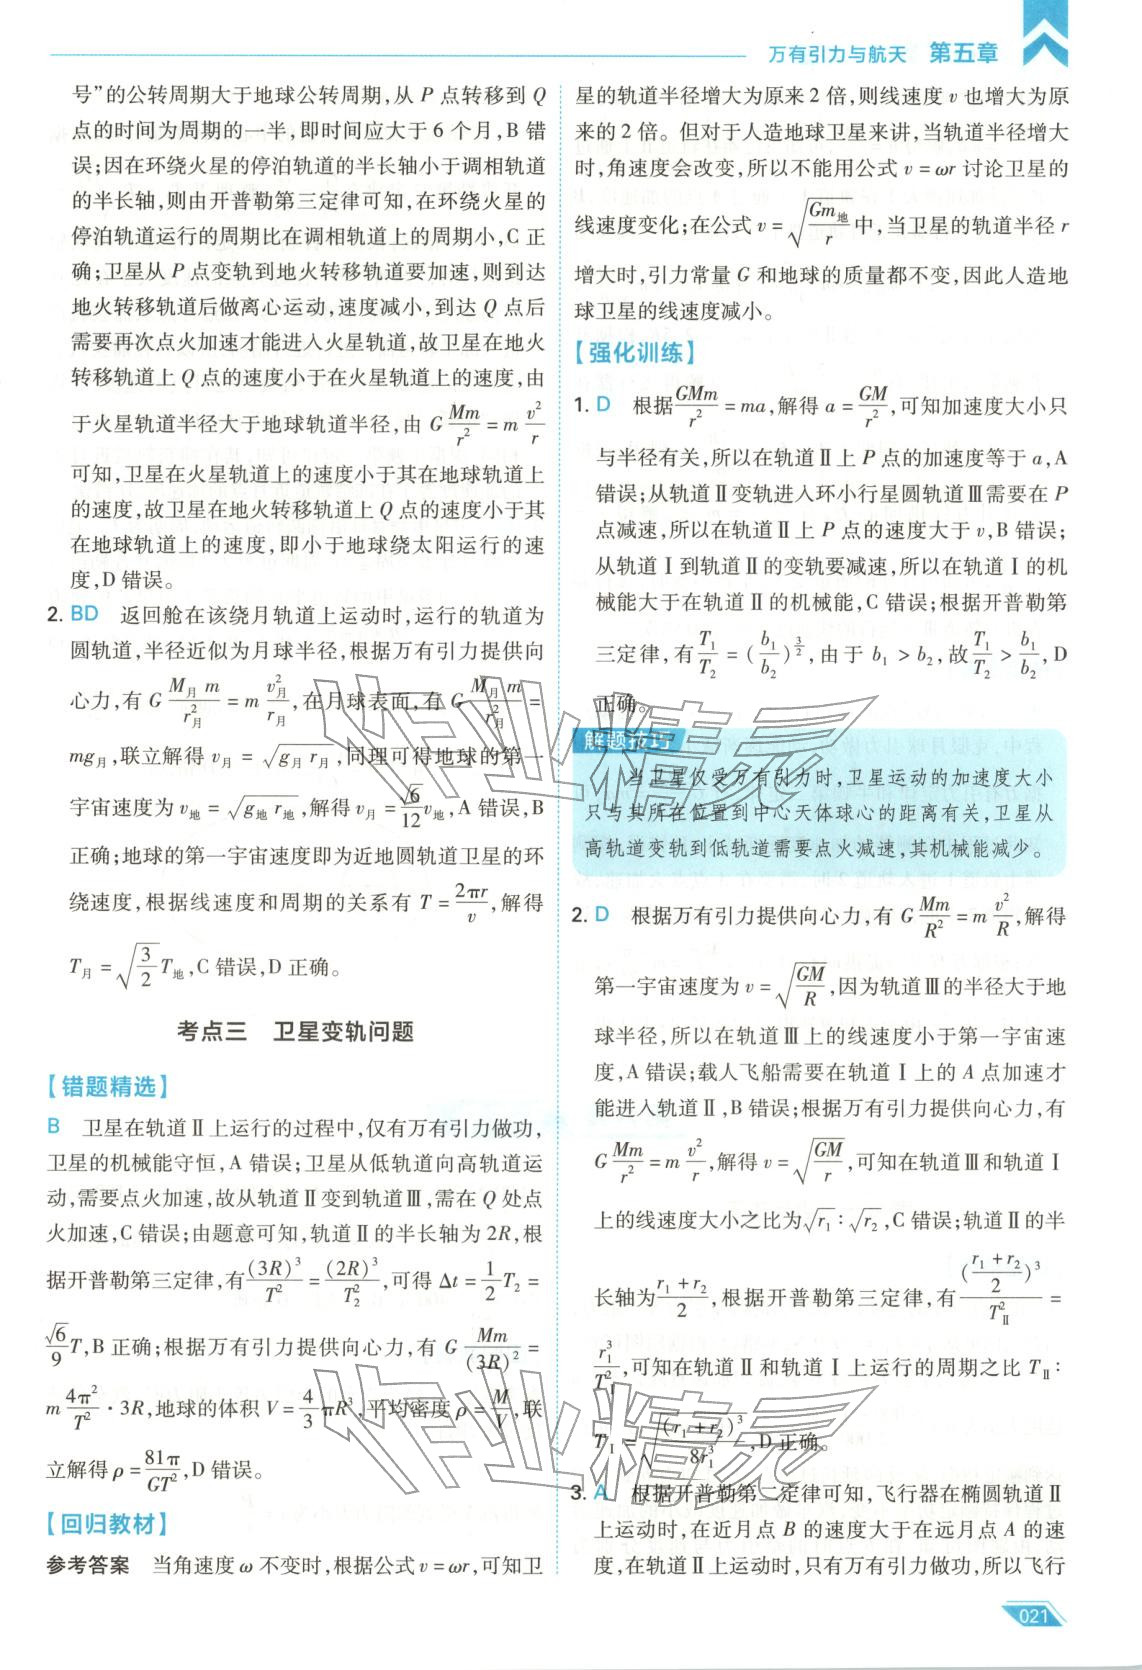 万有引力与航天 第五章
号”的公转周期大于地球公转周期,从 P 点转移到 Q
点的时间为周期的一半,即时间应大于 6 个月,B 错
误;因在环绕火星的停泊轨道的半长轴小于调相轨道
的半长轴,则由开普勒第三定律可知,在环绕火星的
停泊轨道运行的周期比在调相轨道上的周期小,C 正
确;卫星从 P 点变轨到地火转移轨道要加速,则到达
地火转移轨道后做离心运动,速度减小,到达 Q 点后
需要再次点火加速才能进入火星轨道,故卫星在地火
转移轨道上 Q 点的速度小于在火星轨道上的速度,由
于火星轨道半径大于地球轨道半径,由 G Mm/r² = m v²/r
可知,卫星在火星轨道上的速度小于其在地球轨道上
的速度,故卫星在地火转移轨道上 Q 点的速度小于其
在地球轨道上的速度,即小于地球绕太阳运行的速
度,D 错误。
2. BD 返回舱在该绕月轨道上运动时,运行的轨道为
圆轨道,半径近似为月球半径,根据万有引力提供向
心力,有 G M月m/r月² = m v月²/r月,在月球表面,有 G M月m/r月² =
mg月,联立解得 v月 = √(g月r月),同理可得地球的第一
宇宙速度为 v地 = √(g地r地),解得 v月 = √6/12 v地,A 错误,B
正确;地球的第一宇宙速度即为近地圆轨道卫星的环
绕速度,根据线速度和周期的关系有 T = 2πr/v,解得
T月 = √(3/2) T地,C 错误,D 正确。
考点三 卫星变轨问题
【错题精选】
B 卫星在轨道Ⅱ上运行的过程中,仅有万有引力做功,
卫星的机械能守恒,A 错误;卫星从低轨道向高轨道运
动,需要点火加速,故从轨道Ⅱ变到轨道Ⅲ,需在 Q 处点
火加速,C 错误;由题意可知,轨道Ⅱ的半长轴为 2R,根
据开普勒第三定律,有 (3R)³/T² = (2R)³/T₂²,可得 Δt = 1/2 T₂ =
√6/9 T,B 正确;根据万有引力提供向心力,有 G Mm/(3R)² =
m 4π²/T² · 3R,地球的体积 V = 4/3 πR³,平均密度 ρ = M/V,联
立解得 ρ = 81π/GT²,D 错误。
【回归教材】
参考答案 当角速度 ω 不变时,根据公式 v = ωr,可知卫
星的轨道半径增大为原来 2 倍,则线速度 v 也增大为原
来的 2 倍。但对于人造地球卫星来讲,当轨道半径增大
时,角速度会改变,所以不能用公式 v = ωr 讨论卫星的
线速度变化;在公式 v = √(Gm地/r) 中,当卫星的轨道半径 r
增大时,引力常量 G 和地球的质量都不变,因此人造地
球卫星的线速度减小。
【强化训练】
1. D 根据 GMm/r² = ma,解得 a = GM/r²,可知加速度大小只
与半径有关,所以在轨道Ⅱ上 P 点的加速度等于 a,A
错误;从轨道Ⅱ变轨进入环小行星圆轨道Ⅲ需要在 P
点减速,所以在轨道Ⅱ上 P 点的速度大于 v,B 错误;
从轨道Ⅰ到轨道Ⅱ的变轨要减速,所以在轨道Ⅰ的机
械能大于在轨道Ⅱ的机械能,C 错误;根据开普勒第
三定律,有 T₁/T₂ = (b₁/b₂)^(3/2),由于 b₁ > b₂,故 T₁/T₂ > b₁/b₂,D
正确。
解题技巧
当卫星仅受万有引力时,卫星运动的加速度大小
只与其所在位置到中心天体球心的距离有关,卫星从
高轨道变轨到低轨道需要点火减速,其机械能减少。
2. D 根据万有引力提供向心力,有 G Mm/R² = m v²/R,解得
第一宇宙速度为 v = √(GM/R),因为轨道Ⅲ的半径大于地
球半径,所以在轨道Ⅲ上的线速度小于第一宇宙速
度,A 错误;载人飞船需要在轨道Ⅰ上的 A 点加速才
能进入轨道Ⅱ,B 错误;根据万有引力提供向心力,有
G Mm/r² = m v²/r,解得 v = √(GM/r),可知在轨道Ⅲ和轨道Ⅰ
上的线速度大小之比为 √r₁ : √r₂,C 错误;轨道Ⅱ的半
长轴为 (r₁ + r₂)/2,根据开普勒第三定律,有 ((r₁ + r₂)/2)³/TⅡ² =
r₁³/TⅠ²,可知在轨道Ⅱ和轨道Ⅰ上运行的周期之比 TⅡ :
TⅠ = √((r₁ + r₂)³/8r₁³),D 正确。
3. A 根据开普勒第二定律可知,飞行器在椭圆轨道Ⅱ
上运动时,在近月点 B 的速度大于在远月点 A 的速
度,在轨道Ⅱ上运动时,只有万有引力做功,所以飞行
作业精灵
作业精灵
021